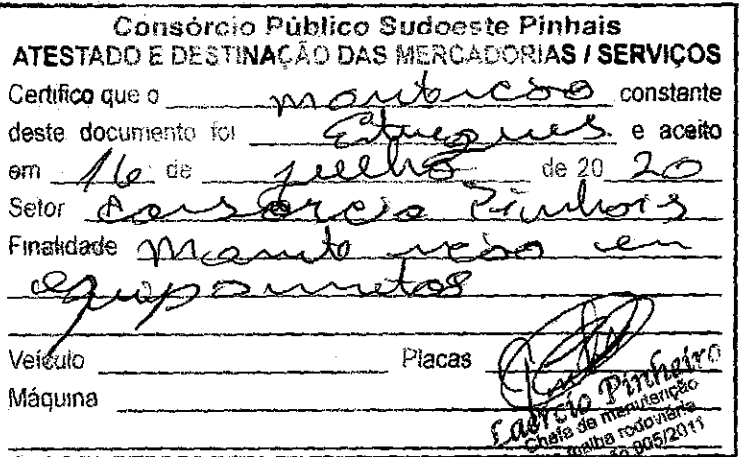 Consórcio Público Sudoeste Pinhais
ATESTADO E DESTINAÇÃO DAS MERCADORIAS / SERVIÇOS
Certifico que o constante
deste documento foi e aceito
em 16 de julho de 20 20
Setor Consórcio Pinhais
Finalidade em
Veículo Placas
Máquina
Laércio Pinheiro
Chefe de manutenção
malha rodoviária
005/2011